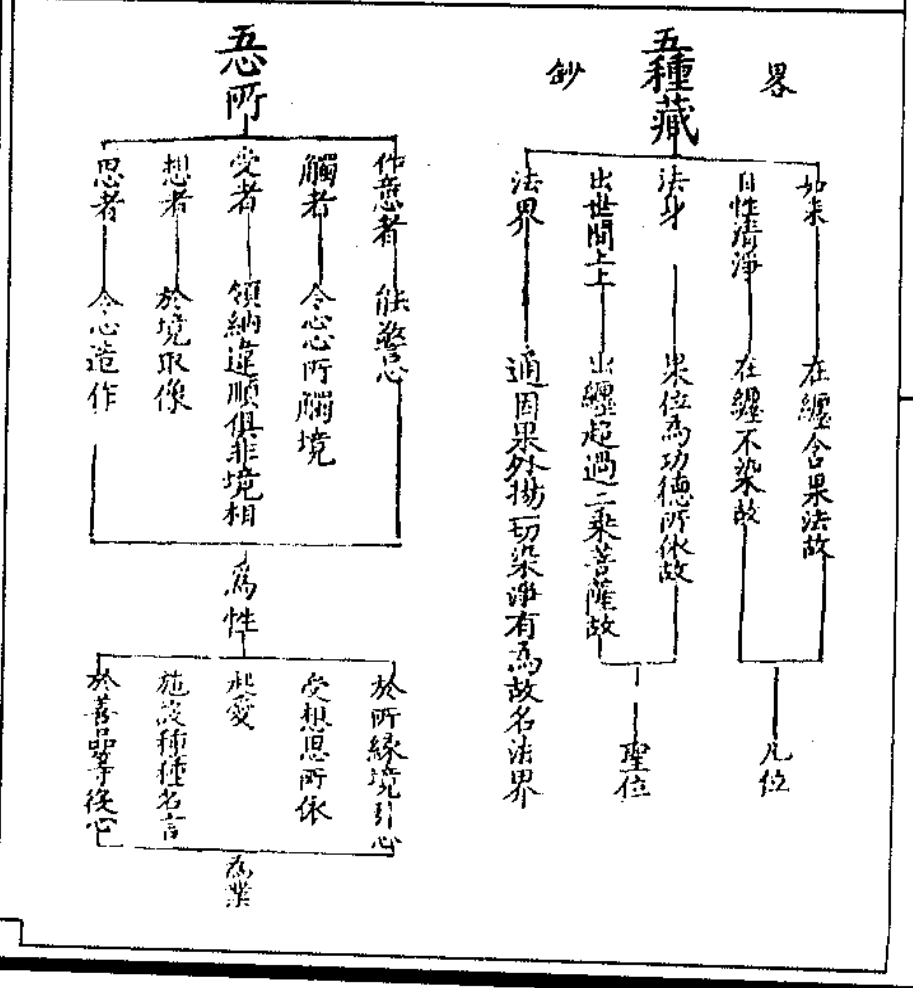 畧
五種藏
鈔
如来
在纏含果法故
自性清淨
在纏不染故
凡位
法身
果位為功德所依故
出世間上上
出纏超過二乘菩薩故
聖位
法界
通因果外拗一切染淨有為故名法界
五心所
作意者
能警心
觸者
令心心所觸境
受者
領納違順俱非境相
想者
於境取像
思者
令心造作
為性
於所緣境引心
受想思所依
起愛
施設種種名言
於善品等役心
為業